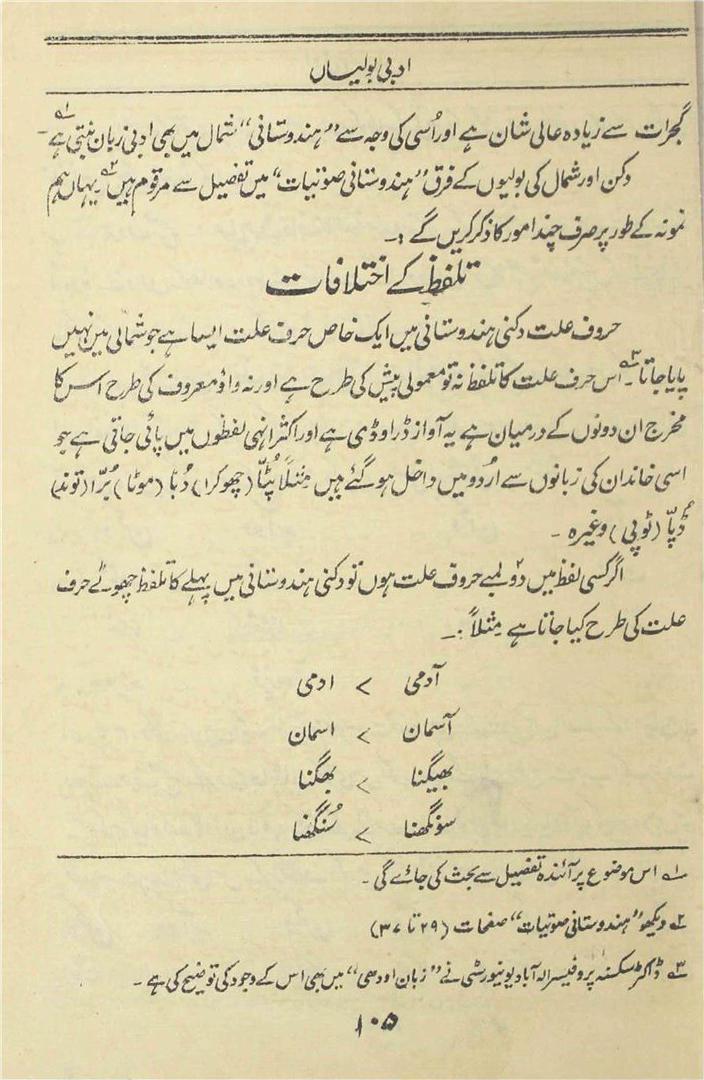 ادبی بولیاں
گجرات سے زیادہ عالی شان ہے اور اُسی کی وجہ سے “ہندوستانی” شمال میں بھی ادبی زبان بنتی ہے ۱؎ -
دکن اور شمال کی بولیوں کے فرق “ہندوستانی صوتیات” میں تفصیل سے مرقوم ہیں ۲؎ - یہاں ہم
نمونہ کے طور پر صرف چند امور کا ذکر کریں گے :-
تلفظ کے اختلافات
حروف علت دکنی ہندوستانی میں ایک خاص حرف علت ایسا ہے جو شمالی میں نہیں
پایا جاتا ۳؎ - اس حرف علت کا تلفظ نہ تو معمولی پیش کی طرح ہے اور نہ واؤ معروف کی طرح اس کا
مخرج ان دونوں کے درمیان ہے یہ آواز ڈراوڈی ہے اور اکثر انہی لفظوں میں پائی جاتی ہے جو
اسی خاندان کی زبانوں سے اُردو میں داخل ہو گئے ہیں مثلاً پُٹّا (چھوکرا) دُبّا (موٹا) بُرّا (توند)
ڈُپّا (ٹوپی) وغیرہ -
اگر کسی لفظ میں دو لمبے حروف علت ہوں تو دکنی ہندوستانی میں پہلے کا تلفظ چھوٹے حرف
علت کی طرح کیا جاتا ہے مثلاً :-
آدمی > ادمی
آسمان > اسمان
بھیگنا > بھگنا
سونگھنا > سُنگھنا
۱؎ اس موضوع پر آئندہ تفصیل سے بحث کی جائے گی -
۲؎ دیکھو “ہندوستانی صوتیات” صفحات (۲۹ تا ۳۷)
۳؎ ڈاکٹر سکسنہ پروفیسر الہ آباد یونیورسٹی نے “زبان اودھی” میں بھی اس کے وجود کی توضیح کی ہے -
۱۰۵